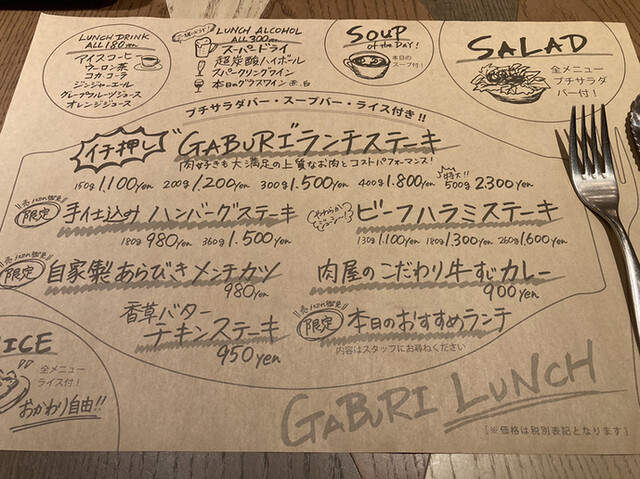 LUNCH DRINK
ALL 180yen
アイスコーヒー
ウーロン茶
コカ・コーラ
ジンジャーエール
グレープフルーツジュース
オレンジジュース
LUNCH ALCOHOL
ALL 300yen
スーパードライ
超炭酸ハイボール
スパークリングワイン
本日のグラスワイン 赤・白
SOUP
of the DAY!
本日の
スープ付!
SALAD
全メニュー
プチサラダ
バー付!
プチサラダバー・スープバー・ライス付き!!
イチ押し
"GABURI"ランチステーキ
肉好きも大満足の上質なお肉とコストパフォーマンス!
150g 1.100yen 200g 1.200yen 300g 1.500yen 400g 1.800yen 500g 2.300yen
限定
手仕込みハンバーグステーキ
180g 980yen 360g 1.500yen
やわらか
ジューシー!
ビーフハラミステーキ
130g 1.100yen 180g 1.300yen 260g 1.600yen
限定
自家製あらびきメンチカツ
980yen
肉屋のこだわり牛すじカレー
900yen
香草バター
チキンステーキ
950yen
限定
本日のおすすめランチ
内容はスタッフにお尋ねください
ICE
全メニュー
ライス付!
おかわり自由!!
GABURI LUNCH
[※価格は税別表記となります]